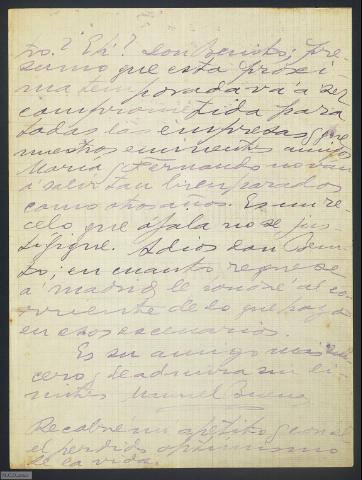 ro. ? Eh? Don Benito; pre-
sumo que esta próxi-
ma temporada va á ser
comprometida para
todas las empresas y que
nuestros eminentes amigos
Maria y Fernando no van
á salir tan bien parados
como otros años. Es un re-
celo que ójala no se jus-
tifique. Adios Don Beni-
to; en cuanto regrese
á Madrid le pondré al co-
rriente de lo que haya
en esos escenarios.
Es su amigo mas sin-
cero y le admira sin lí-
mites Manuel Bueno
Recobré mi apetito y con él
el perdido optimismo
de la vida.